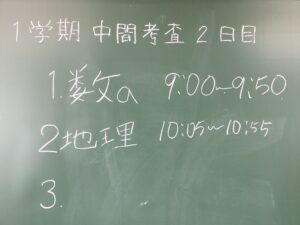 1学期 中間考査 2日目
1.数a 9:00~9:50
2地理 10:05~10:55
3.